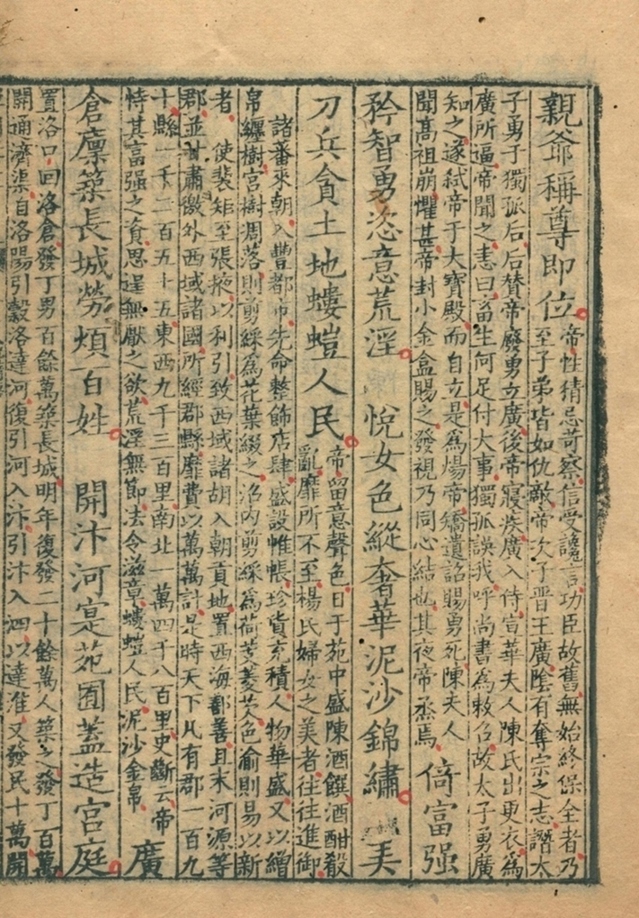 親爺稱尊即位
帝性猜忌苛察信受讒言功臣故舊無始終保全者乃
至子弟皆如仇敵帝次子晋王廣陰有奪宗之志譖太
子勇于獨孤后后賛帝廢勇立廣後帝寢疾廣入侍宣華夫人陳氏出更衣為
廣所逼帝聞之恚曰畜生何足付大事獨孤誤我呼尚書為敕召故太子勇廣
知之遂弑帝于大寶殿而自立是為煬帝矯遺詔賜勇死陳夫人
聞高祖崩懼甚帝封小金盒賜之發視乃同心結也其夜帝烝焉
倚富强
矜智勇恣意荒淫 悅女色縱奢華泥沙錦繡 美
刀兵貪土地螻螘人民
帝留意聲色日于苑中盛陳酒饌酒酣殺
亂靡所不至楊氏婦女之美者往往進御
諸畨來朝入豐都市先命整飾店肆盛設帷帳珍貨充積人物華盛又以繒
帛纏樹宮樹凋落則剪綵為花葉綴之沼内剪綵為荷芰菱芡色渝則易以新
者 使裴矩至張掖以利引致西域諸胡入朝貢地置西海鄯善且末河源等
郡並甘肅徼外西域諸國所經郡縣靡費以萬萬計是時天下凡有郡一百九
十縣一千二百五十五東西九千三百里南北一萬四千八百里史斷云帝
恃其富强之資思逞無厭之欲荒淫無節法令滋章螻螘人民泥沙金帛
廣
倉廩築長城勞煩百姓 開汴河寔苑囿蓋造宮庭
置洛口回洛倉發丁男百餘萬築長城明年復發二十餘萬人築之發丁百萬
開通濟渠自洛陽引穀洛達河復引河入汴引汴入泗以達淮又發民十萬開